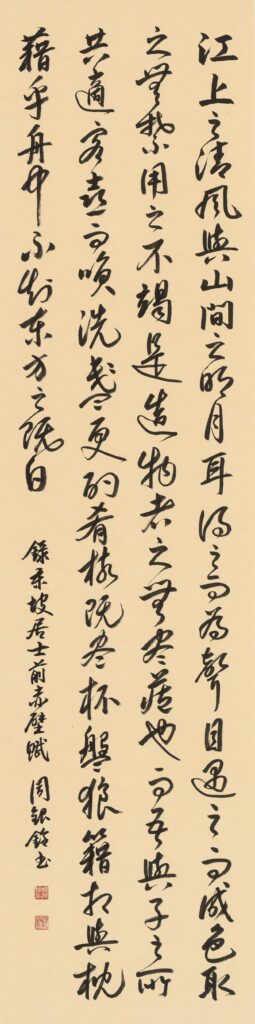 江上之清風與山間之明月耳得之而為聲目遇之而成色取
之無禁用之不竭是造物者之無盡藏也而吾與子之所
共適客喜而笑洗盞更酌肴核既盡杯盤狼籍相與枕
藉乎舟中不知東方之既白
錄東坡居士前赤壁賦 周銀鈴書